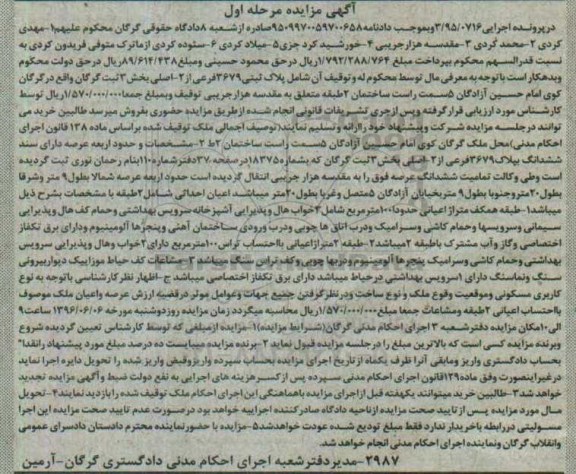 آگهی مزایده مرحله اول
درپرونده اجرایی ۳/۹۵/۰۷۱۶ وبموجب دادنامه ۹۵۰۹۹۷۰۰۵۹۷۰۰۶۵۸ صادره ازشعبه ۸ دادگاه حقوقی گرگان محکوم علیهم ۱-مهدی
کردی ۲-محمد گردی ۳-مقدسه هزارجریبی ۴-خورشید کرد جزی ۵-میلاد کردی ۶-ستوده کردی ازماترک متوفی فریدون کردی به
نسبت قدرالسهم محکوم بپرداخت مبلغ ۱/۷۹۲/۲۸۸/۷۶۴ ریال درحق محمود حسینی ومبلغ ۸۹/۶۱۴/۴۳۸ ریال درحق دولت محکوم
وبدهکار است باتوجه به معرفی مال توسط محکوم له و توقیف آن شامل پلاک ثبتی ۳۶۷۹ فرعی از ۲-اصلی بخش ۳ ثبت گرگان واقع در گرگان
کوی امام حسین آزادگان ۵ سمت راست ساختمان ۲ط متعلق به مقدسه هزارجریبی توقیف وبمبلغ جمعا ۱/۵۷۰/۰۰۰/۰۰۰ ریال توسط
کارشناس مورد ارزیابی قرار گرفته وپس ازجری تشریفات قانونی انجام شده ازطریق مزایده حضوری بفروش میرسد طالبین خرید می
توانند درجلسه مزایده شرکت وپیشنهاد خود را ارائه و تسلیم نمایند(توصیف اجمالی ملک توقیف شده براساس ماده ۱۳۸ قانون اجرای
احکام مدنی)محل ملک گرگان کوی امام حسین آزادگان ۵ سمت راست ساختمان ۲ط ۲-مشخصات و حدود اربعه عرصه دارای سند
ششدانگ بپلاک ۳۶۷۹ فرعی از ۲-اصلی بخش ۳ ثبت گرگان که بشماره ۱۸۳۷۵ درصفحه ۳۷۰ دفترشماره ۱۱۰ بنام رحمان نوری ثبت گردیده
است وطی وکالت تمامیت ششدانگ عرصه فوق را به مقدسه هزار جریبی انتقال گردیده است حدود اربعه عرصه شمالا بطول ۹ متر وشرقا
بطول ۲۰ متروجنوبا بطول ۹ متربخیابان آزادگان ۵ متصل وغربا بطول ۲۰ متر میباشد اعیان احداثی شامل ۲ طبقه با مشخصات بشرح ذیل
میباشد ۱-طبقه همکف متراژ اعیانی حدودا ۱۰۰ مترمربع شامل ۲ خواب هال و پذیرایی آشپزخانه سرویس بهداشتی وحمام کف هال وپذیرایی
سیمانی وسرویسها وحمام کاشی وسرامیک ودرب اتاق ها چوبی ودرب ورودی ساختمان آهنی وپنجرها آلومینیوم ودارای برق تکفاز
اختصاصی وگاز وآب مشترک باطبقه ۲ میباشد ۲-طبقه ۲ متراژاعیانی بااحتساب تراس ۱۰۰ مترمربع دارای ۲ خواب وهال وپذیرایی سرویس
بهداشتی وحمام کاشی وسرامیک پنجرها آلومینیوم دربها چوبی وکف تراس سنگ میباشد ۳-مشاعات کف حیاط موزاییک دیواربیرونی
سنگ ونماسنگ دارای ۱ سرویس بهداشتی درحیاط میباشد دارای برق تکفاز اختصاصی میباشد ج-اظهار نظر کارشناسی باتوجه به نوع
کاربری مسکونی وموقعیت وقوع ملک و نوع ساخت ودرنظرگرفتن جمیع جهات وعوامل موثر درقضیه ارزش عرصه واعیان ملک موصوف
بااحتساب اعیانی ۲ طبقه ومشاعات جمعا مبلغ ۱/۵۷۰/۰۰۰/۰۰۰ ریال محاسبه میگردد زمان مزایده روز دوشنبه مورخه ۱۳۹۶/۰۶/۰۶ ساعت ۹
الی ۱۰ مکان مزایده دفترشعبه ۳ اجرای احکام مدنی گرگان(شرایط مزایده) ۱-مزایده ازمبلغی که توسط کارشناس تعیین گردیده شروع
وبرنده مزایده کسی است که بالاترین مبلغ را درجلسه مزایده قبول نماید ۲-برنده مزایده میبایست ده درصد مبلغ مورد پیشنهاد رانقدا"
بحساب دادگستری واریز ومابقی آنرا ظرف یکماه ازتاریخ اجرای مزایده بحساب سپرده واریزوفیش واریز شده را تحویل دایره اجرا نماید
درغیراینصورت وفق ماده ۱۲۹ قانون اجرای احکام مدنی سپرده پس ازکسر هزینه های اجرایی به نفع دولت ضبط وآگهی مزایده تجدید
خواهد شد ۳-طالبین خرید میتوانند یکهفته قبل ازاجرای مزایده باهماهنگی این اجرای احکام ملک توقیف شده را بازدید نمایند ۴-تحویل
مال مورد مزایده پس ازتایید صحت مزایده ازناحیه دادگاه صادرکننده اجراییه خواهد بود درصورت عدم تایید صحت مزایده این اجرا
مسئولیتی دررابطه باخریدار ندارد فقط مبلغ تودیع شده عودت خواهد شد ۵-مزایده با حضورنماینده محترم دادستان دادسرای عمومی
وانقلاب گرگان ونماینده اجرای احکام مدنی انجام خواهد شد.
۲۹۸۷-مدیردفترشعبه اجرای احکام مدنی دادگستری گرگان-آرمین